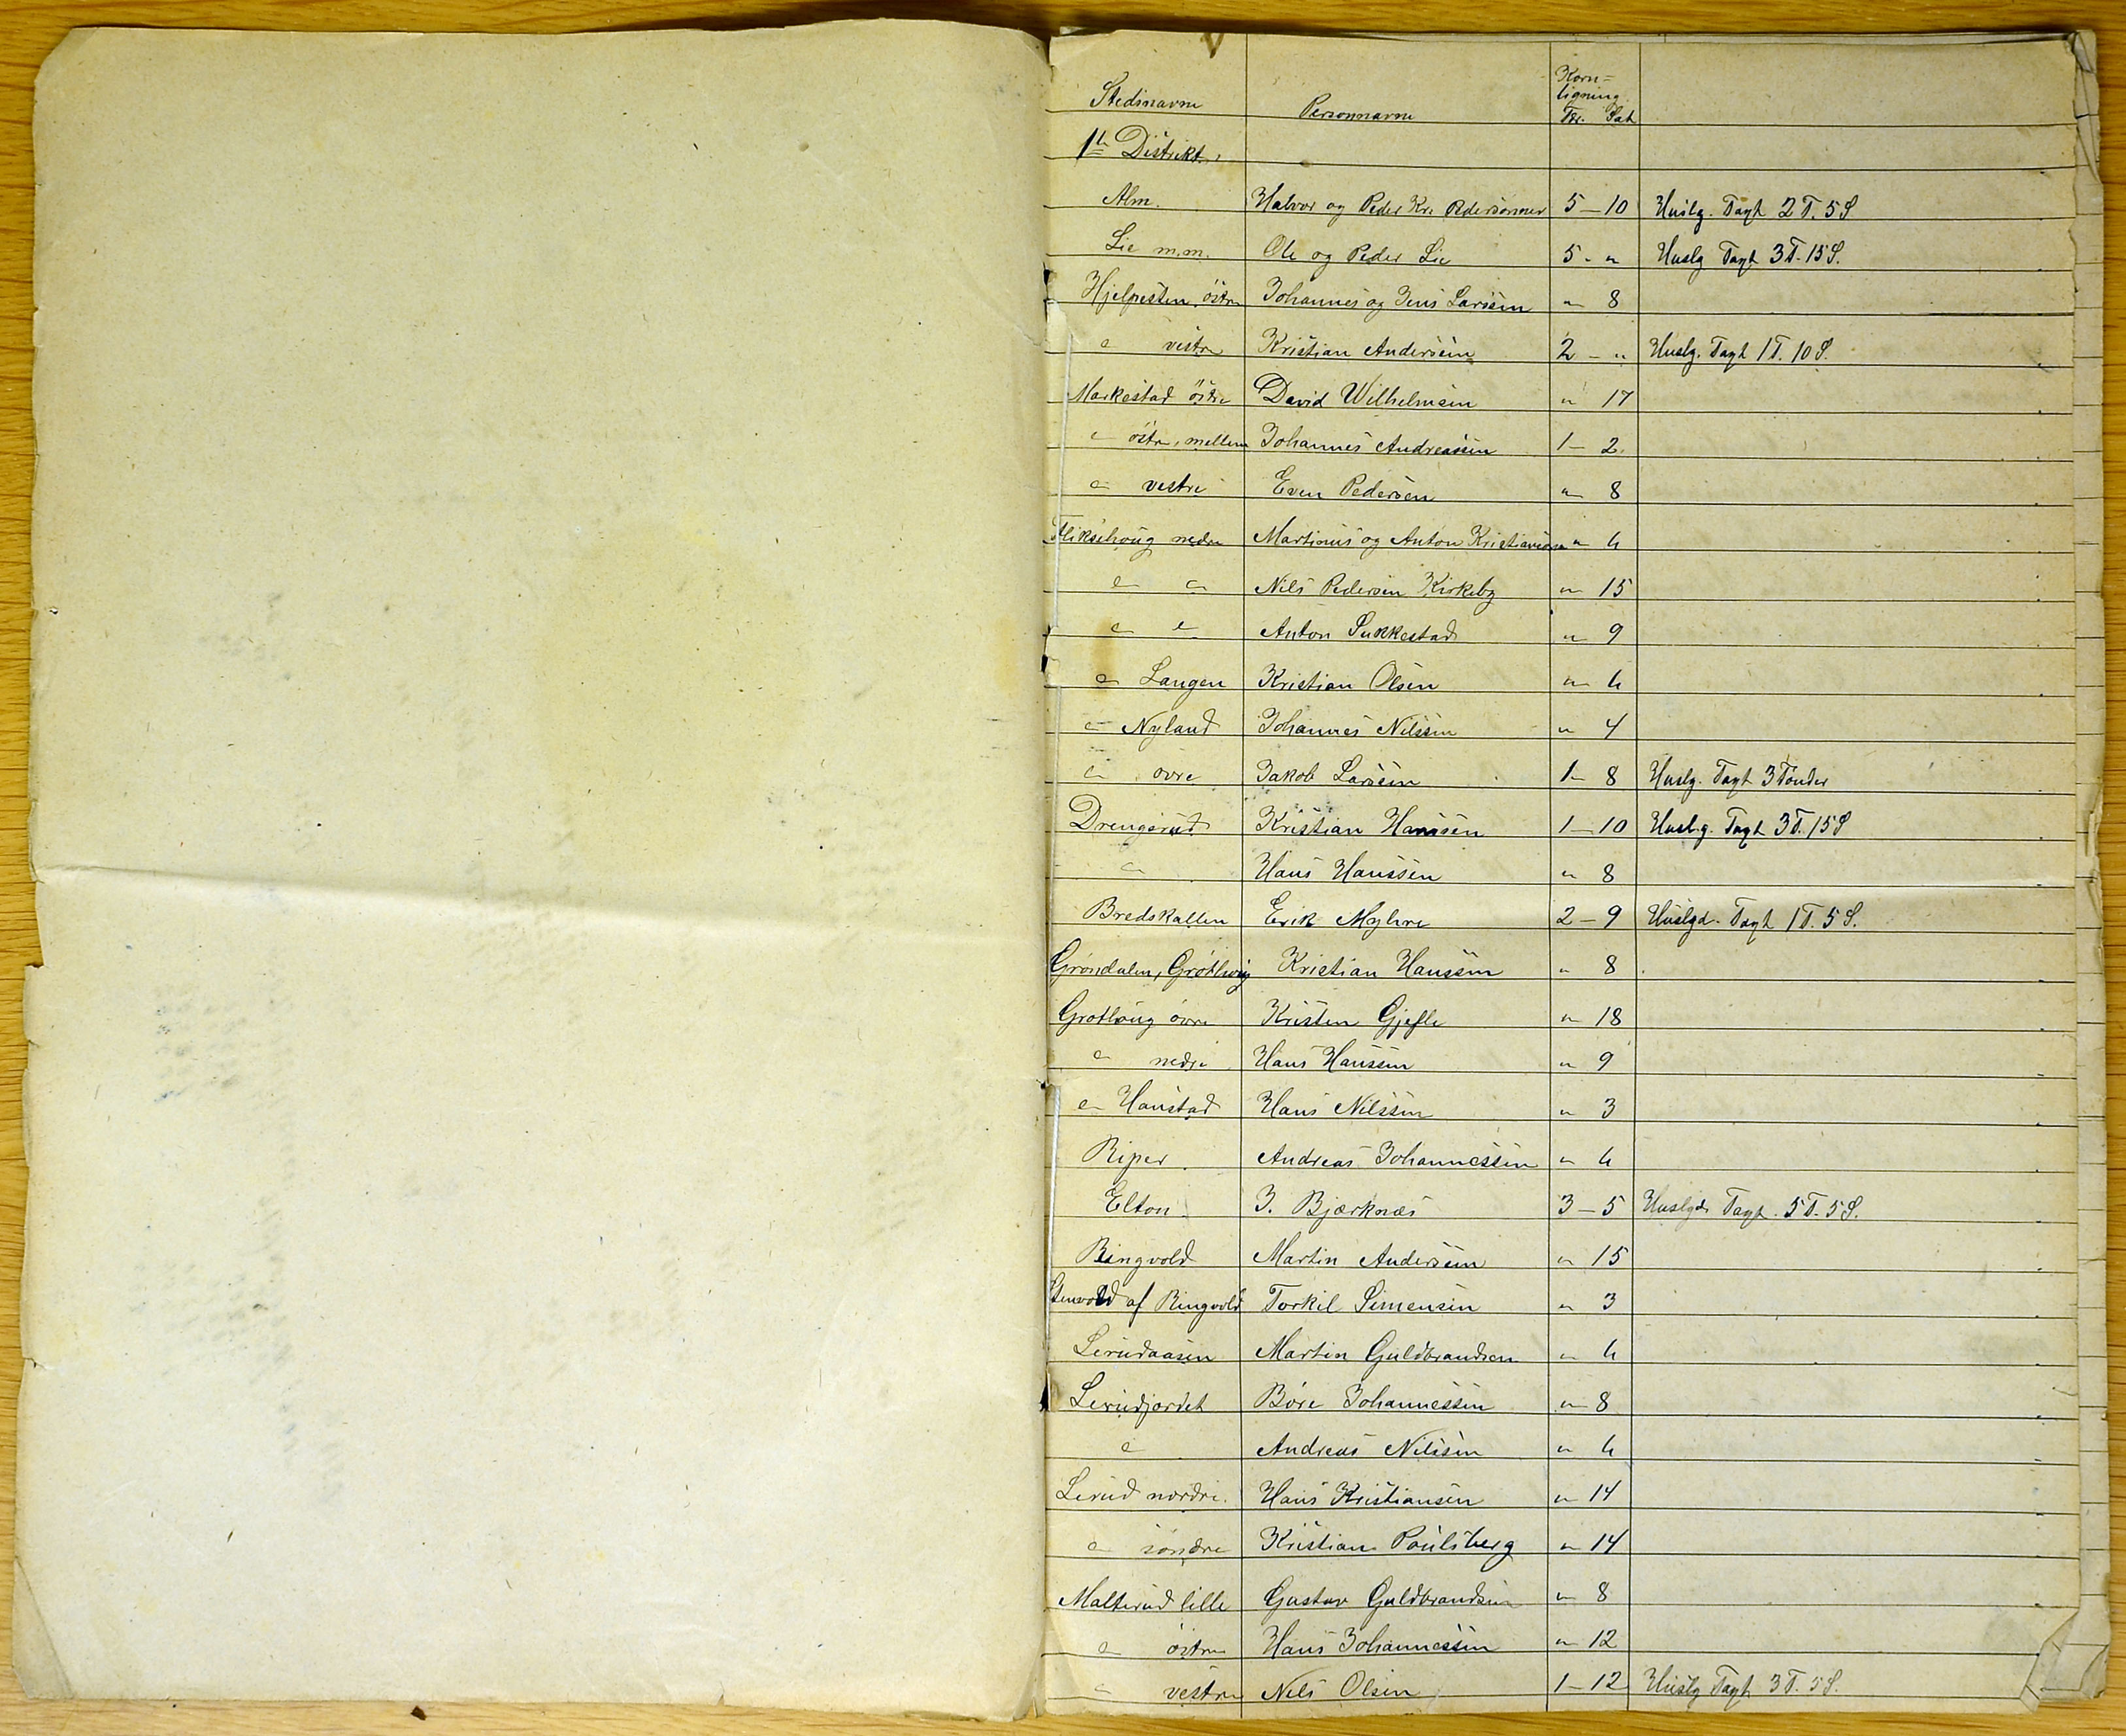 Stedsnavne Personnavne Korn=ligning Tdr. Sat
1ste Distrikt.
Alm. Halvor og Peder Kr. Pedersønner 5 – 10 Huslg. Tagt 2 T. 5 S
Lie m.m. Ole og Peder Lie 5 - " Huslg Tagt 3 T. 15 S.
Hjelpesten, östre Johannes og Jens Larssen " 8
" vestre Kristian Anderssen 2 – " Huslg. Tagt 1 T. 10 S.
Markestad östre David Wilhelmsen " 17
" östre, mellem Johannes Andreassen 1 – 2.
" vestre Even Pedersen " 8
Flikshoug nedre Martinus og Anton Kristiansøn " 6
" " Nils Pedersen Kirkeby " 15
" " Anton Sukkestad " 9
" Langen Kristian Olsen " 6
" Nyland Johannes Nilssen " 4
" övre Jakob Larssen 1 – 8 Huslg. Tagt 3 Tönder
Drengsrud Kristian Hanssen 1 – 10 Huslg. Tagt 3 T. 15 S
" Hans Hanssen " 8
Bredskallen Erik Myhre 2 – 9 Huslgd. Tagt 1 T. 5 S.
Gröndalen, Kristian Hanssen " 8
Grötloug övre Kristen Gjefle " 18
" nedre Hans Hanssen " 9
" Hanstad Hans Nilssen " 3
Riper. Andreas Johannessen " 6
Elton J. Bjærknæs 3 – 5 Huslgd. Tagt. 5 T. 5 S.
Ringvold Martin Anderssen " 15
Stenvold af Ringvold Torkil Simensen " 3
Lerudaasen Martin Guldbrandsen " 6
Lerudjordet Böre Johannessen " 8
" Andreas Nilssen " 6
Lerud nordre. Hans Kristiansen " 14
" söndre Kristian Paulsberg " 14
Malterud lille Gustav Guldbrandsen " 8
" östre Hans Johannessen " 12
" vestre Nels Olsen 1 – 12 Huslg Tagt 3 T. 5 S.